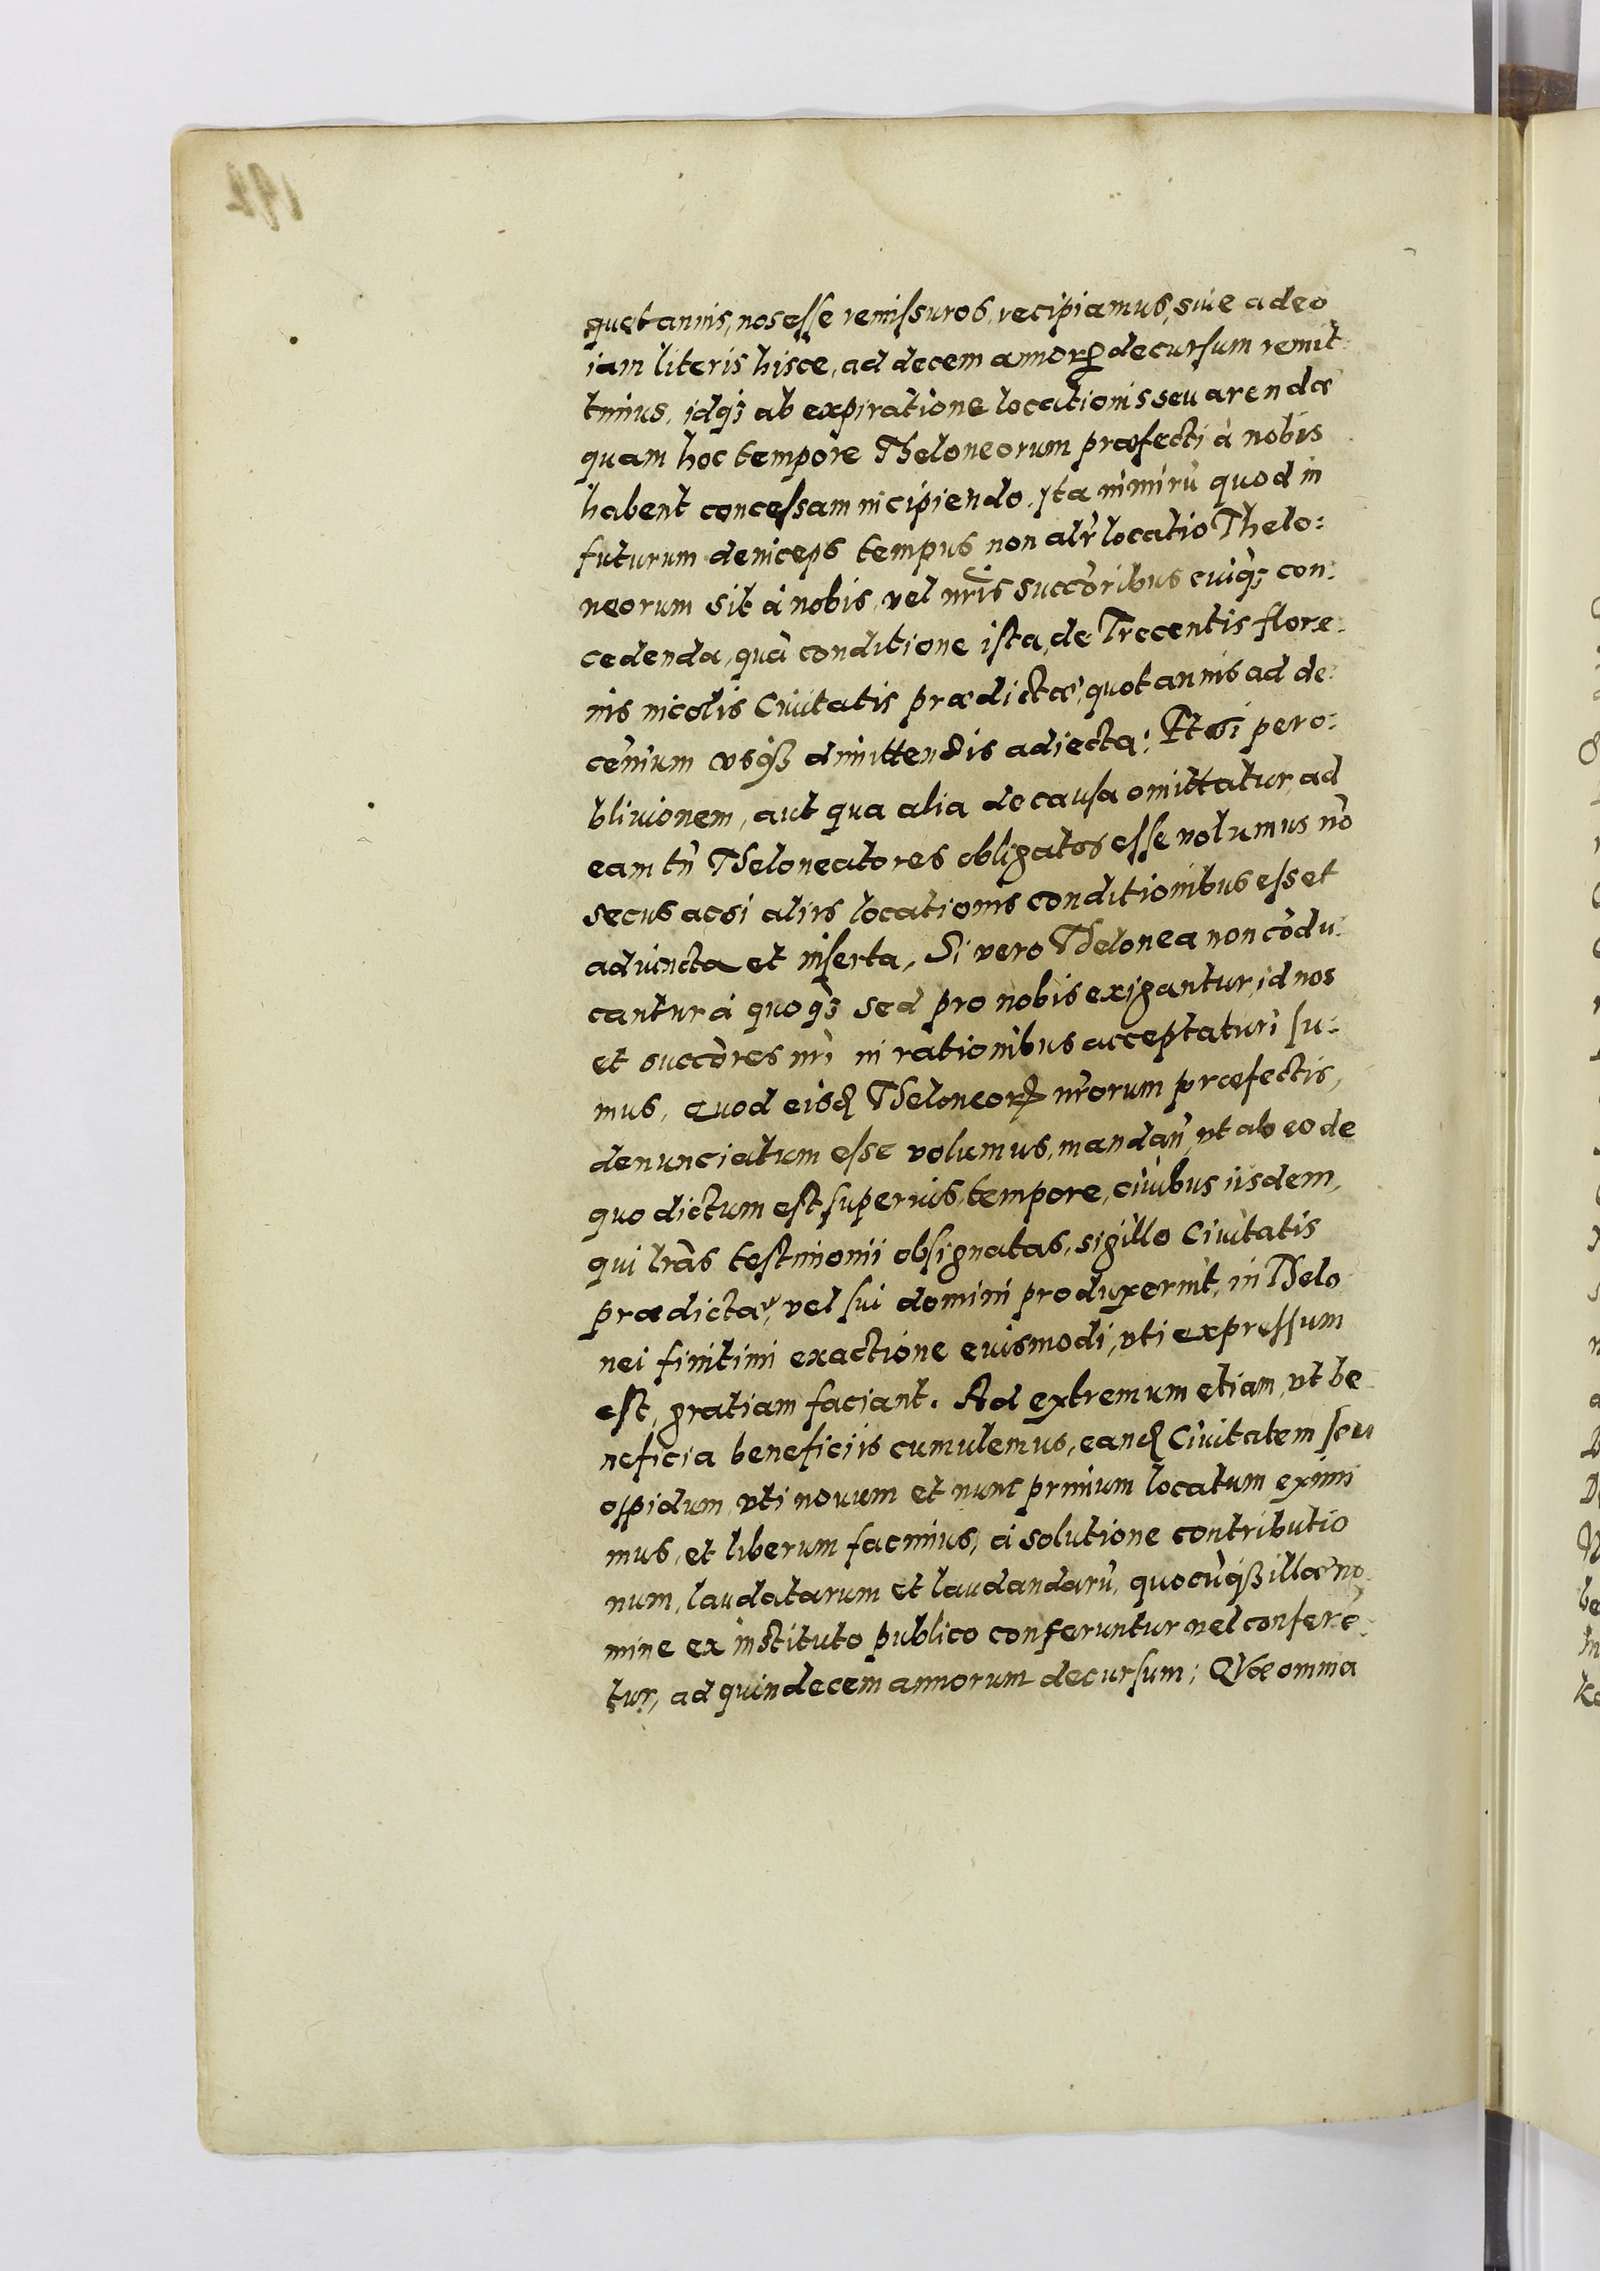 quotannis, nos esse remissuros, recipiamus, siue adeo
iam literis hisce, ad decem annorꝝ decursum remit-
timus, idqꝫ ab expiratione locationis seu arendæ
quam hoc tempore Theloneorum præfecti à nobis
habent concessam incipiendo. Ita nimirū quod in
futurum deinceps tempus non alr̃ locatio Thelo:
neorum sit à nobis, vel nr̃is succoribus cuiqꝫ con:
cedenda, quà conditione ista, de Trecentis flore-
nis incolis Ciuitatis prædictæ, quotannis ad de-
cennium vsqꝫ dimittendis adiecta: Et si per o:
bliuionem, aut qua alia de causa omittatur, ad
eam tn̄ Theloneatores obligatos esse volumus nō
secus ac si alijs locationis conditionibus esset
adiuncta et inserta, Si vero Thelonea non cōdu:
cantur à quoqꝫ sed pro nobis exigantur, id nos
et succores nr̄i in rationibus acceptaturi su:
mus, Quod eisd Theloneorꝝ nr̄orum præfectis,
denunciatum esse volumus, mandan̄, vt ab eo de
quo dictum est superius, tempore, ciuibus iisdem,
qui lr̄as testimonii obsignatas, sigillo Ciuitatis
prædictæ, vel sui domini produxerint, in Thelo
nei finitimi exactione eiusmodi, vti expressum
est, gratiam faciant. Ad extremum etiam, vt be
neficia beneficijs cumulemus, eand Ciuitatem seu
oppidum, vti nouum et nunc primum locatum eximi
mus, et liberum facimus, à solutione contributio
num, laudatarum et laudandarū, quocūqꝫ illæ no-
mine ex instituto publico conferuntur vel conferē-
tur, ad quindecem annorum decursum; Quæ omnia